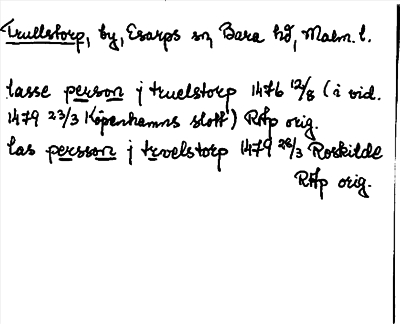 Trullstorp, by, Esarps sn, Bara hd, Malm. l.
lasse person j truelstorp 1476 12/8 (i vid.
1479 23/3 Köpenhamns slott) RAp orig.
las persson j trvelstorp 1479 28/3 Roskilde
RAp orig.